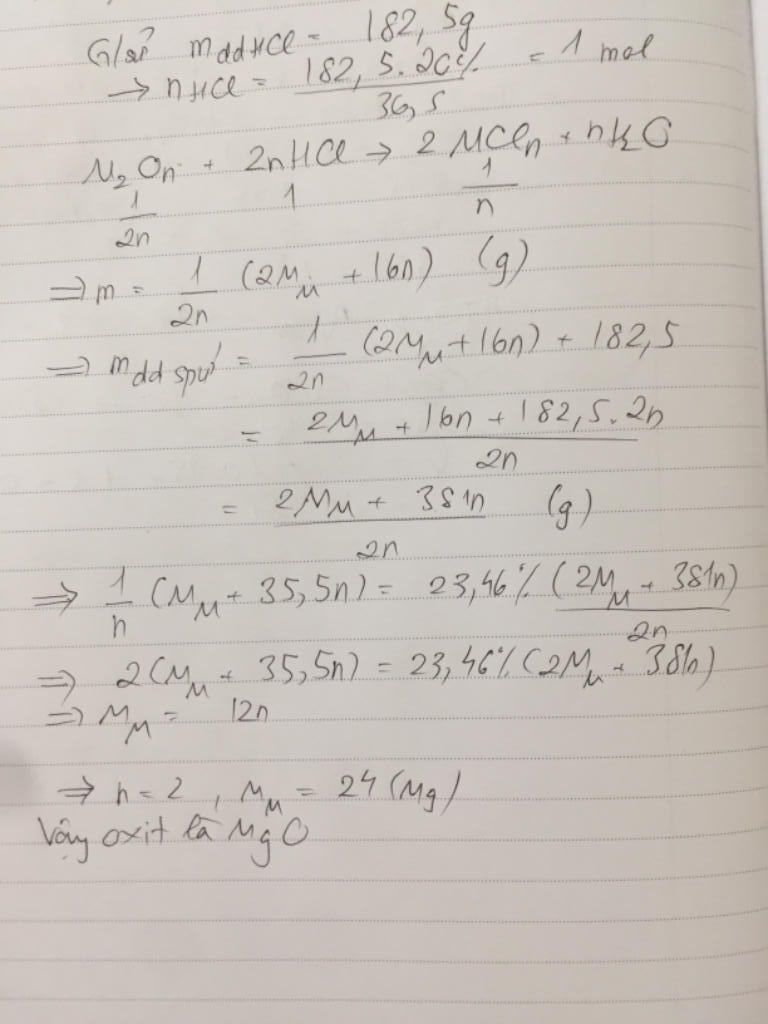 G/sử m dd HCl = 182,5g
→ nHCl = \frac{182,5.20%}{36,5} = 1 mol
M₂Oₙ + 2nHCl → 2 MClₙ + nH₂O
\frac{1}{2n} 1 \frac{1}{n}
⇒ m = \frac{1}{2n} (2M_M + 16n) (g)
⇒ m dd spứ = \frac{1}{2n} (2M_M + 16n) + 182,5
= \frac{2M_M + 16n + 182,5.2n}{2n}
= \frac{2M_M + 381n}{2n} (g)
⇒ \frac{1}{n} (M_M + 35,5n) = 23,46% \frac{(2M_M + 381n)}{2n}
⇒ 2(M_M + 35,5n) = 23,46% (2M_M + 381n)
⇒ M_M = 12n
⇒ n = 2 , M_M = 24 (Mg)
Vậy oxit là MgO